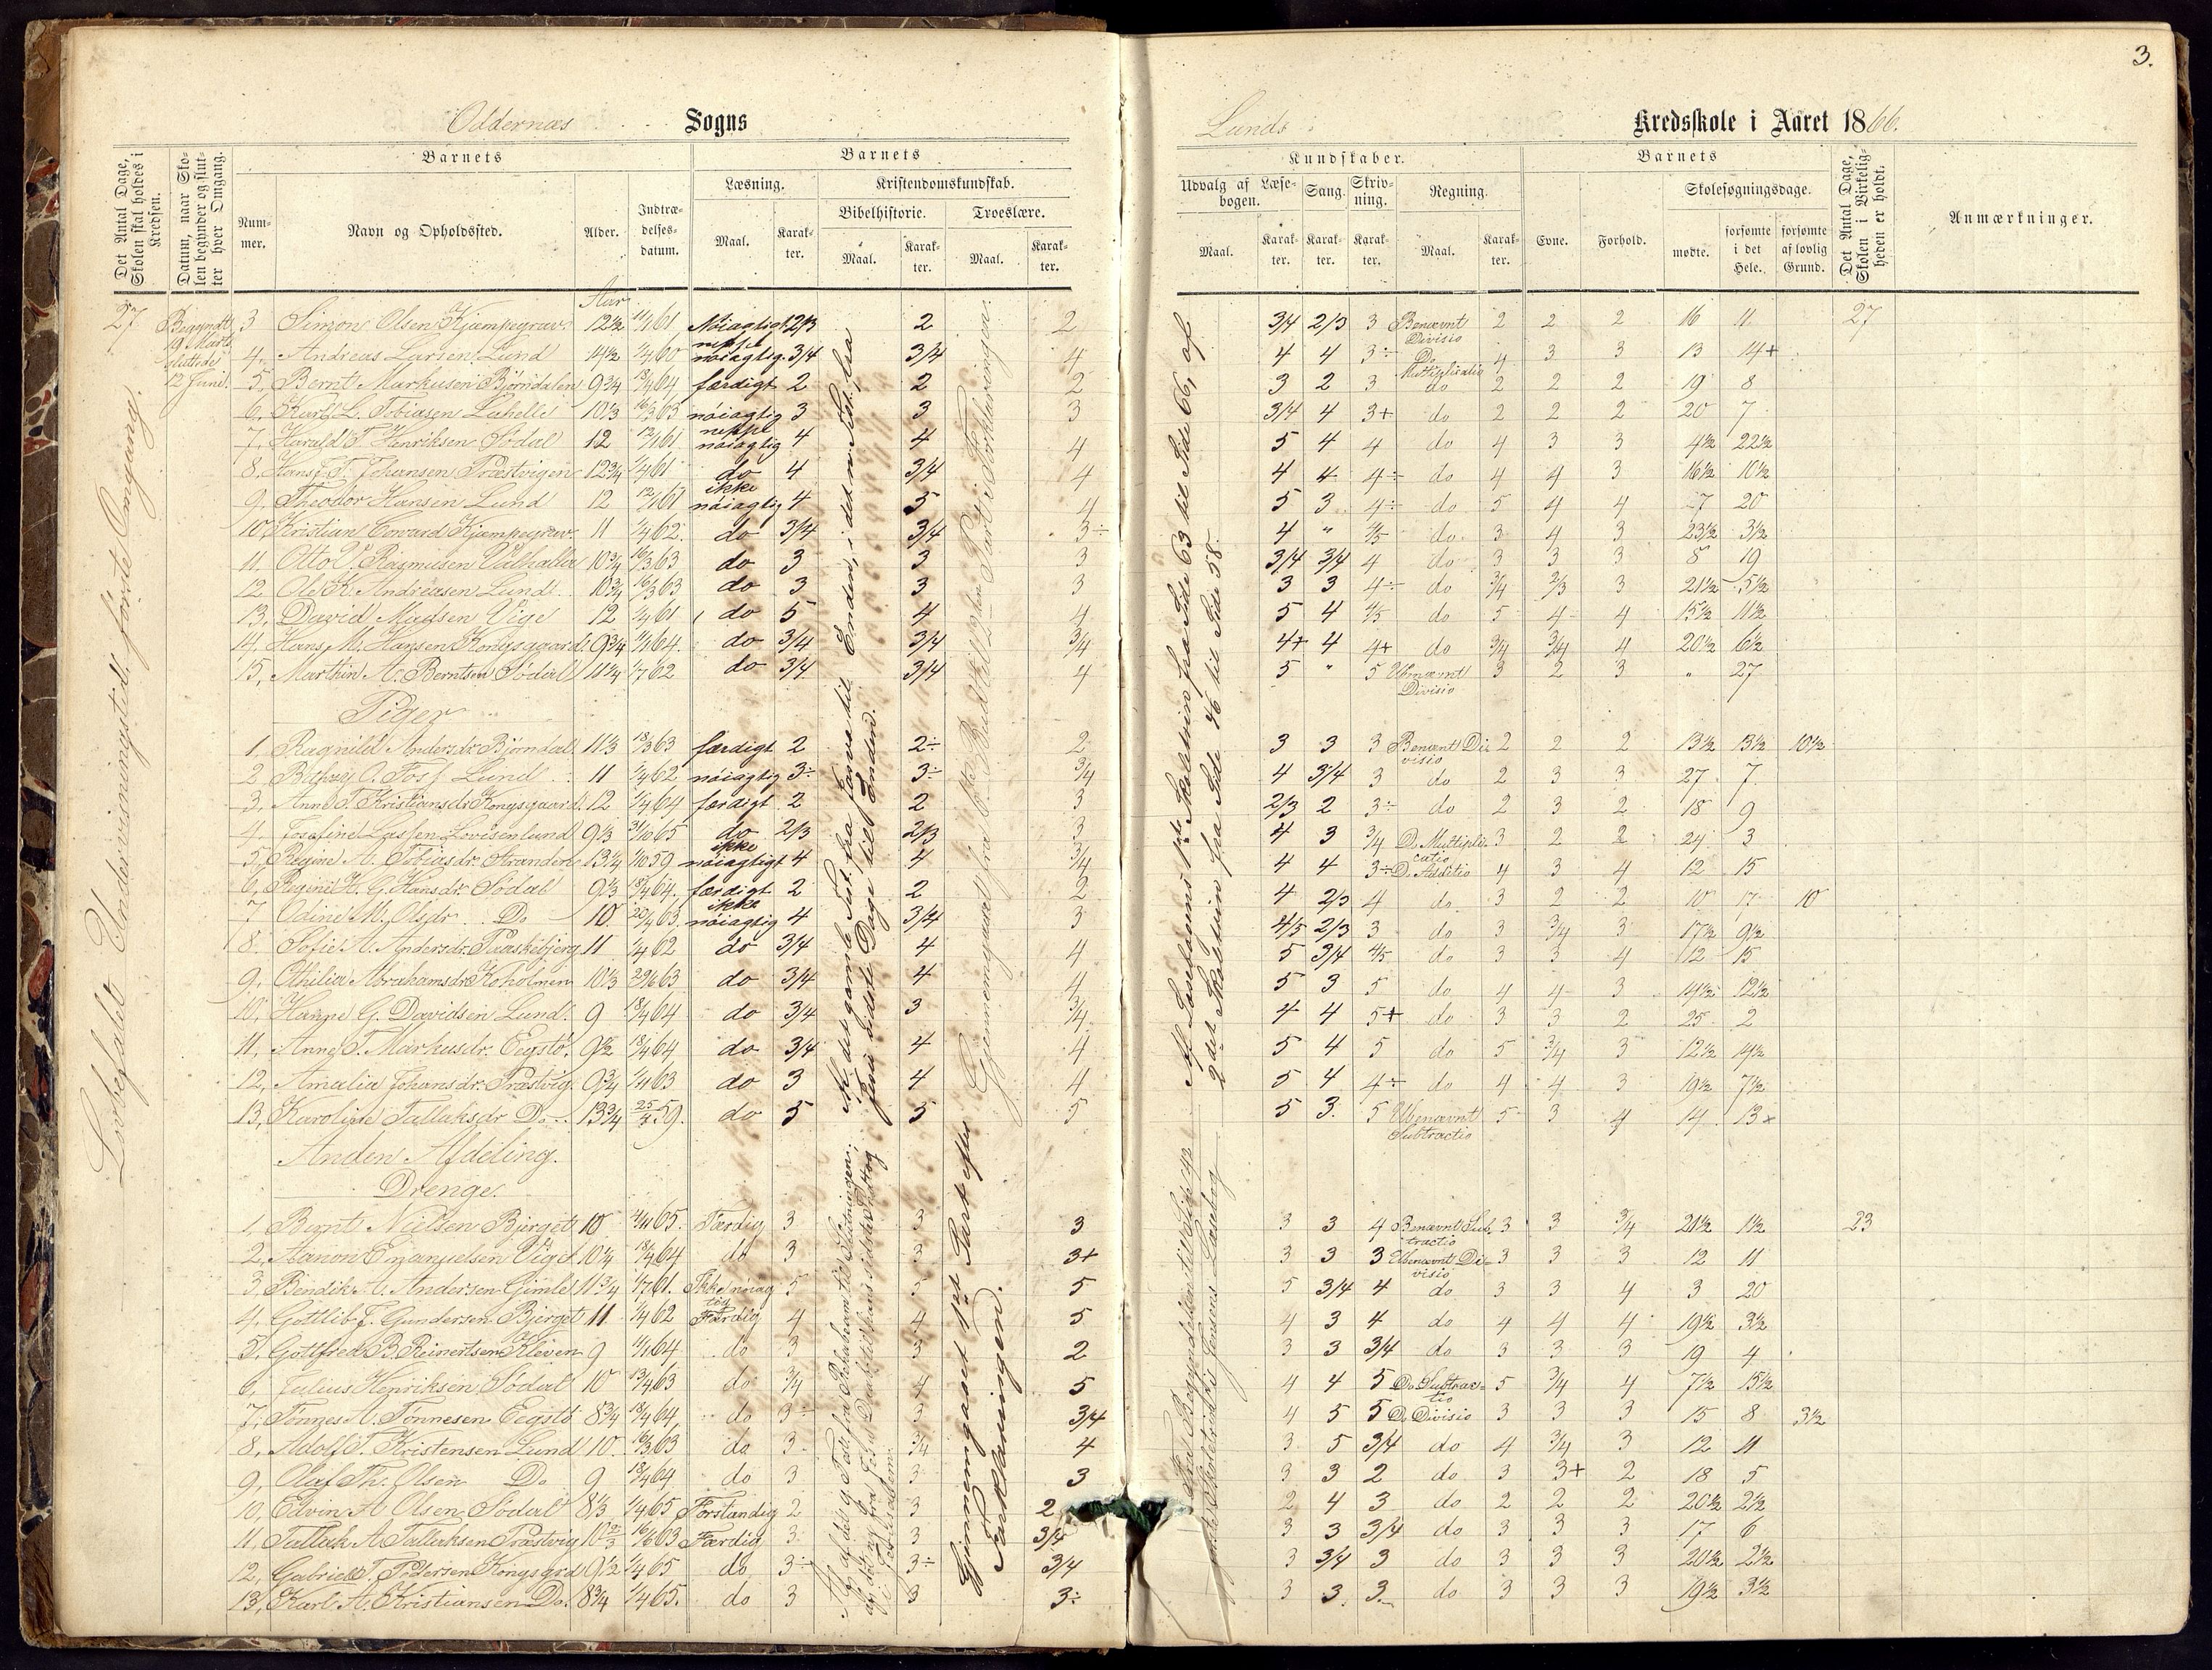 3.
Oddernæs Sogns
Lunds Kredsskole i Aaret 1866.
Det Antal Dage, Skolen skal holdes i Kredsen.
Datum, naar Skolen begynder og slutter hver Omgang.
Barnets
Nummer.
Navn og Opholdssted.
Alder.
Indtrædelsesdatum.
Barnets
Læsning.
Maal.
Karakter.
Kristendomskundskab.
Bibelhistorie.
Maal.
Karakter.
Troeslære.
Maal.
Karakter.
Kundskaber.
Udvalg af Læsebogen.
Maal.
Karakter.
Sang.
Karakter.
Skrivning.
Karakter.
Regning.
Maal.
Karakter.
Barnets
Evne.
Forhold.
Skolesøgningsdage.
mødte.
forsømte i det Hele.
forsømte af lovlig Grund.
Det Antal Dage, Skolen i Virkeligheden er holdt.
Anmærkninger.
Aar
27 Begyndt 19 Marts sluttede 12 Juni.
Lovbefalet Undervisningstid, første Omgang.
3 Simon Olsen Kjæmpegrav 12½ 11/1 61 Nöiagtigt 2/3 2 2 3/4 2/3 3 Benævnt Divisio 2 2 2 16 11 27
4. Andreas Larsen Lund 14½ 1/4 60 neppe nöiagtig. 3/4 3/4 4 4 4 3÷ Do Multiplicatio 4 3 3 13 14+
5, Bernt Markusen Bjørndalen 9¾ 18/4 64 færdigt 2 2 2 3 2 3 do 2 2 2 19 8
6, Karl L. Tobiasen 10⅓ 16/3 63 nöiagtig 3 3 3 3/4 4 3+ do 2 2 2 20 7
7, Harald T. Henriksen Södal 12 12/1 61 neppe nöiagtig 4 4 4 5 4 4 do 4 3 3 4½ 22½
8, Hans T. Johansen Præstvigen 12¾ 1/4 61 do 4 3/4 4 4 4 4÷ do 4 4 3 16½ 10½
9, Theodor Hansen Lund 12 12/1 61 ikke nöiagtig 4 5 4 5 3 4÷ do 5 4 4 7 20
10, Kristian Evward Kjæmpegrav 11 1/4 62. do 3/4 3/4 3÷ 4 " 4/5 do 3 4 3 23½ 3½
11. Otto V. Rasmusen Valhalla 10¾ 16/3 63 do 3 3 3 3/4 3/4 4 do 3 3 3 8 19
12 Ole K. Andreasen Lund. 10¾ 16/3 63 do 3 3 3 3 3 4÷ do 3/4 2/3 3 21½ 5½
13, David Madsen Vige 12 1/4 61 do 5 4 4 5 4 4/5 do 5 4 4 15½ 11½
14, Hans M. Hansen Kongsgaard. 9¾ 11/1 64. do 3/4 3/4 3/4 4+ 4 4+ do 3/4 3/4 4 20½ 6½
15, Marthin A. Berntsen Södal 11¼ 1/7 62 do 3/4 3/4 4 5 " 5 Ubenævnt Divisio 3 2 3 " 27
Piger
1, Ragnild Andersdr Bjørndal 11⅓ 18/3 63 færdigt 2 2÷ 2 3 3 3 Benævnt Divisio 2 2 2 13½ 13½ 10½
2, O. Foss Lund 11 1/4 62 nöiagtig 3÷ 3÷ 3/4 4 3/4 3 do 2 3 3 27 7
3, Anne T. Kristiansdr Kongsgaard. 12 1/4 64 færdigt 2 2 3 2/3 2 3÷ do 2 3 2 18 9
4. Josefine Lassen Lovisenlund 9⅓ 31/10 65 do 2/3 2/3 3 4 3 3/4 D. Multiplicatio 3 2 2 24 3
5, Regine A. Tobiasdr Stranden 13¼ 1/10 59 ikke nöiagtigt 4 4 3/4 4 4 3÷ D. Additio 4 3 4 12 15
6, Regine H. G. Hansdr Södal 9⅓ 18/4 64. færdigt 2 2 2 4 2/3 4 do 3 2 2 10 17 10
7 Odine M. Olsdr Do 10 20/4 63. ikke nöiagtig 4 3/4 3 4/5 2/3 3 do 3 3/4 3 17½ 9½
8. Sofie A. Andersdr. Paaskebjerg 11 1/4 62 do 3/4 4 4 5 3/4 4/5 do 3 3 4 12 15
9, Othilia Abrahamsdr Koholmen 10⅓ 29/6 63 do 3/4 4 4 5 3 5 do 4 4 3 14½ 12½
10, Hanne G. Davidsen Lund. 9 18/4 64 do 3/4 3 3/4 4 4 5+ do 3 3 2 25 2
11, Anne T. Markusdr. Eegstø. 9½ 18/4 64 do 3/4 4 4 5 4 5 do 5 3/4 3 12½ 14½
12, Amalia Johansdr. Præstvig. 9¾ 1/11 63 do 3 4 4 5 4 4÷ do 4 4 3 19½ 7½
13, Karoline Tallaksdr Do. 13¾ 25/4 59. do 5 5 5 5 3. 5 Ubenævnt Subtractio 5 3 4 14 13+
Af det gamle Test. fra Esras til Enden, i det n. Test. fra
Jesu sidste Dage til Enden.
Gjennemgaaet fra 6te Bud til 2den Part i Forklaringen.
Af Læsebogens 1ste Skoletrin fra Side 63 til Side 66, af
2det Skoletrin fra Side 46 til Side 58.
Anden Afdeling.
Drenge.
1, Bernt Nielsen Bjerget 10 4/11 65. Færdig 3 3 3 3 3 4 Benævnt Subtractio 3 3 3/4 21½ 1½ 23
2, Aanon Emanuelsen Vige 10¼ 18/4 64 do 3 3 3+ 3 3 3 Ubenævnt Divisio 3 3 3 12 11
3, Bendik A. Andersen Gimle 11¾ 1/7 61. Ikke nöiagtig 5 5 5 5 3/4 4 do 3 3 4 3 20
4, Gottlib F. Gundersen Bjerget 11 1/4 62 Færdig 4 4 5 4 3 4 do 4 4 4 19½ 3½
5, Gottfred B. Reinertsen Kleven 9 11/1 64 do 3 3 2 3 3 3/4 do 3 3 3 19 4
6, Julius Henriksen Södal 10 13/4 63 do 3/4 4 5 4 4 5 Do Subtractio 5 3/4 4 7½ 15½
7, Tönnes A. Tönnesen Eegstö 8¾ 18/4 64, do 3÷ 3 3/4 4 5 5 D. Divisio 3 3 3 15 8 3½
8, Adolf T. Kristensen Lund 10. 16/3 63 do 3 3/4 4 3 5 3/4 do 4 3/4 3 12 11
9, Olaf Th. Olsen Do 9 18/4 64 do 3 3 3 3 3 2 do 3 3+ 2 18 5
10, Edvin A Olsen Södal 8⅓ 1/4 65 Forstandig 2 3 2 2 4 3 do 2 2 2 20½ 2½
11, Tallak A Tallaksen Præstvig 10⅔ 16/6 63 Færdig 3 3 3/4 3 3 3/4 do 3 3 3 17 6
12, Gabriel T. Pedersen Kongsgrd 9½ 1/4 65 do 3÷ 3÷ 3/4 3 3/4 3 do 3 3 3 20½ 2½
13, Karl A. Kristiansen Do. 8¾ 1/4 65. do 3 3 3÷ 3 3. 3. do 3 3 3 19½ 3½
Gjennemgaaet 1ste Part efter
Forklaringen.
Fra Begyndelsen til Side 42
Jensens Læsebog